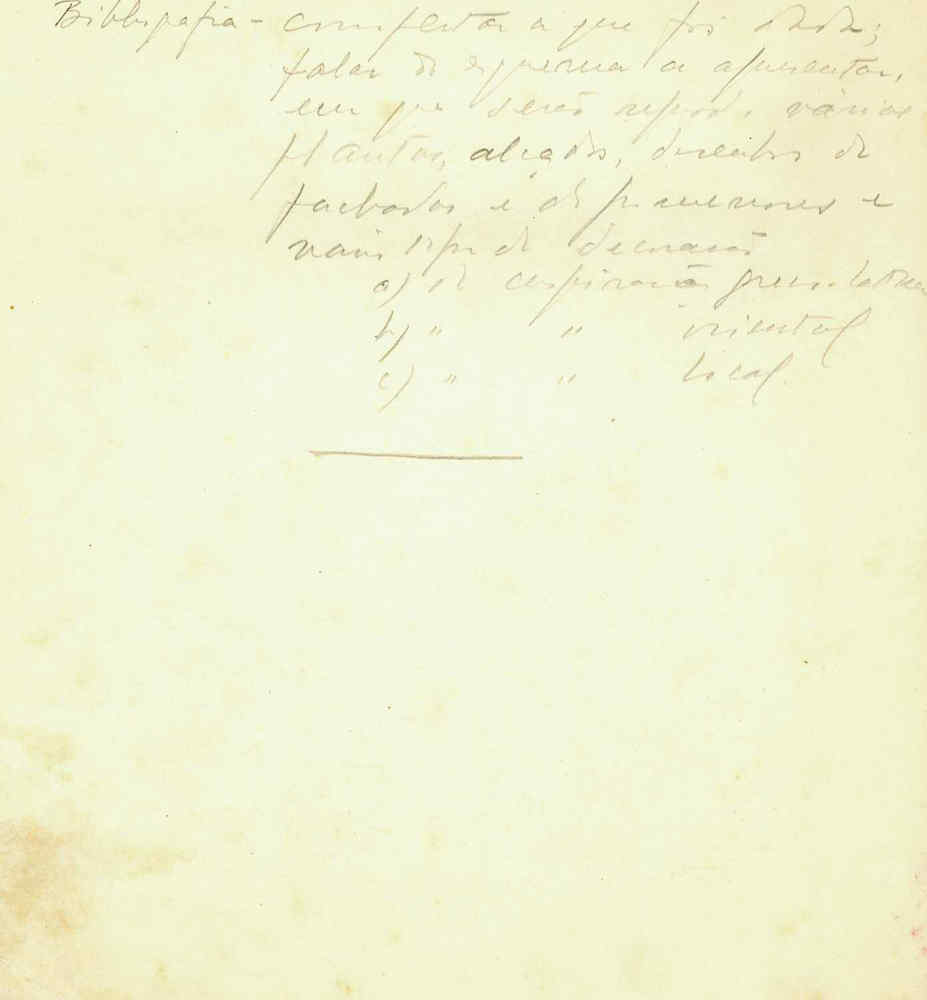 Bibliografia - completar a que foi dada;
falar do esquema a apresentar,
em que serão reprod. várias
plantas, alçados, desenhos de
fachadas e de pormenores e
vários tipos de decoração
a) de inspiração greco-latina
b) " " oriental
c) " " local.